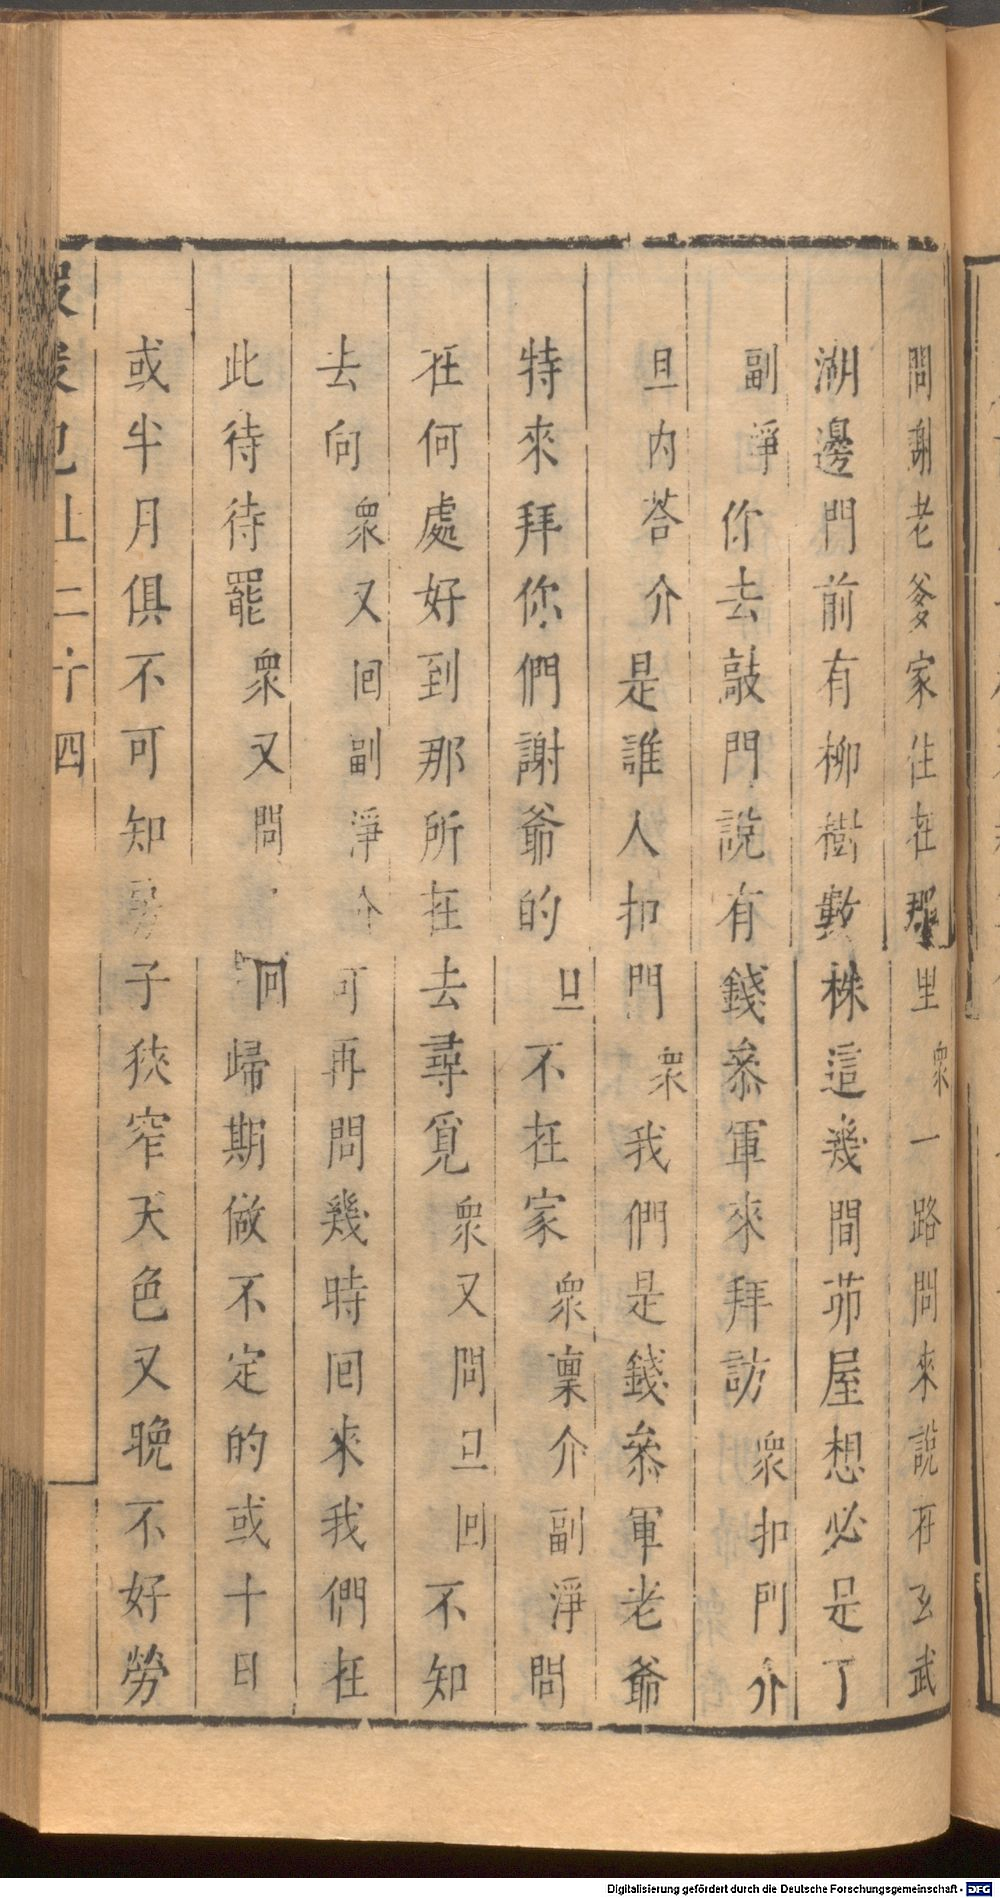 問謝老爹家住在那里衆一路問來說在玄武
湖邊門前有柳樹數株這幾間茆屋想必是了
副淨你去敲門說有錢叅軍來拜訪衆扣門介
旦内荅介是誰人扣門衆我們是錢叅軍老爺
特來拜你們謝爺的旦不在家衆稟介副淨問
在何處好到那所在去尋覓衆又問旦回不知
去向衆又回副淨介可再問幾時回來我們在
此待待罷衆又問回歸期做不定的或十日
或半月俱不可知房子狹窄天色又晚不好勞
上二十四
Digitalisierung gefördert durch die Deutsche Forschungsgemeinschaft - DFG